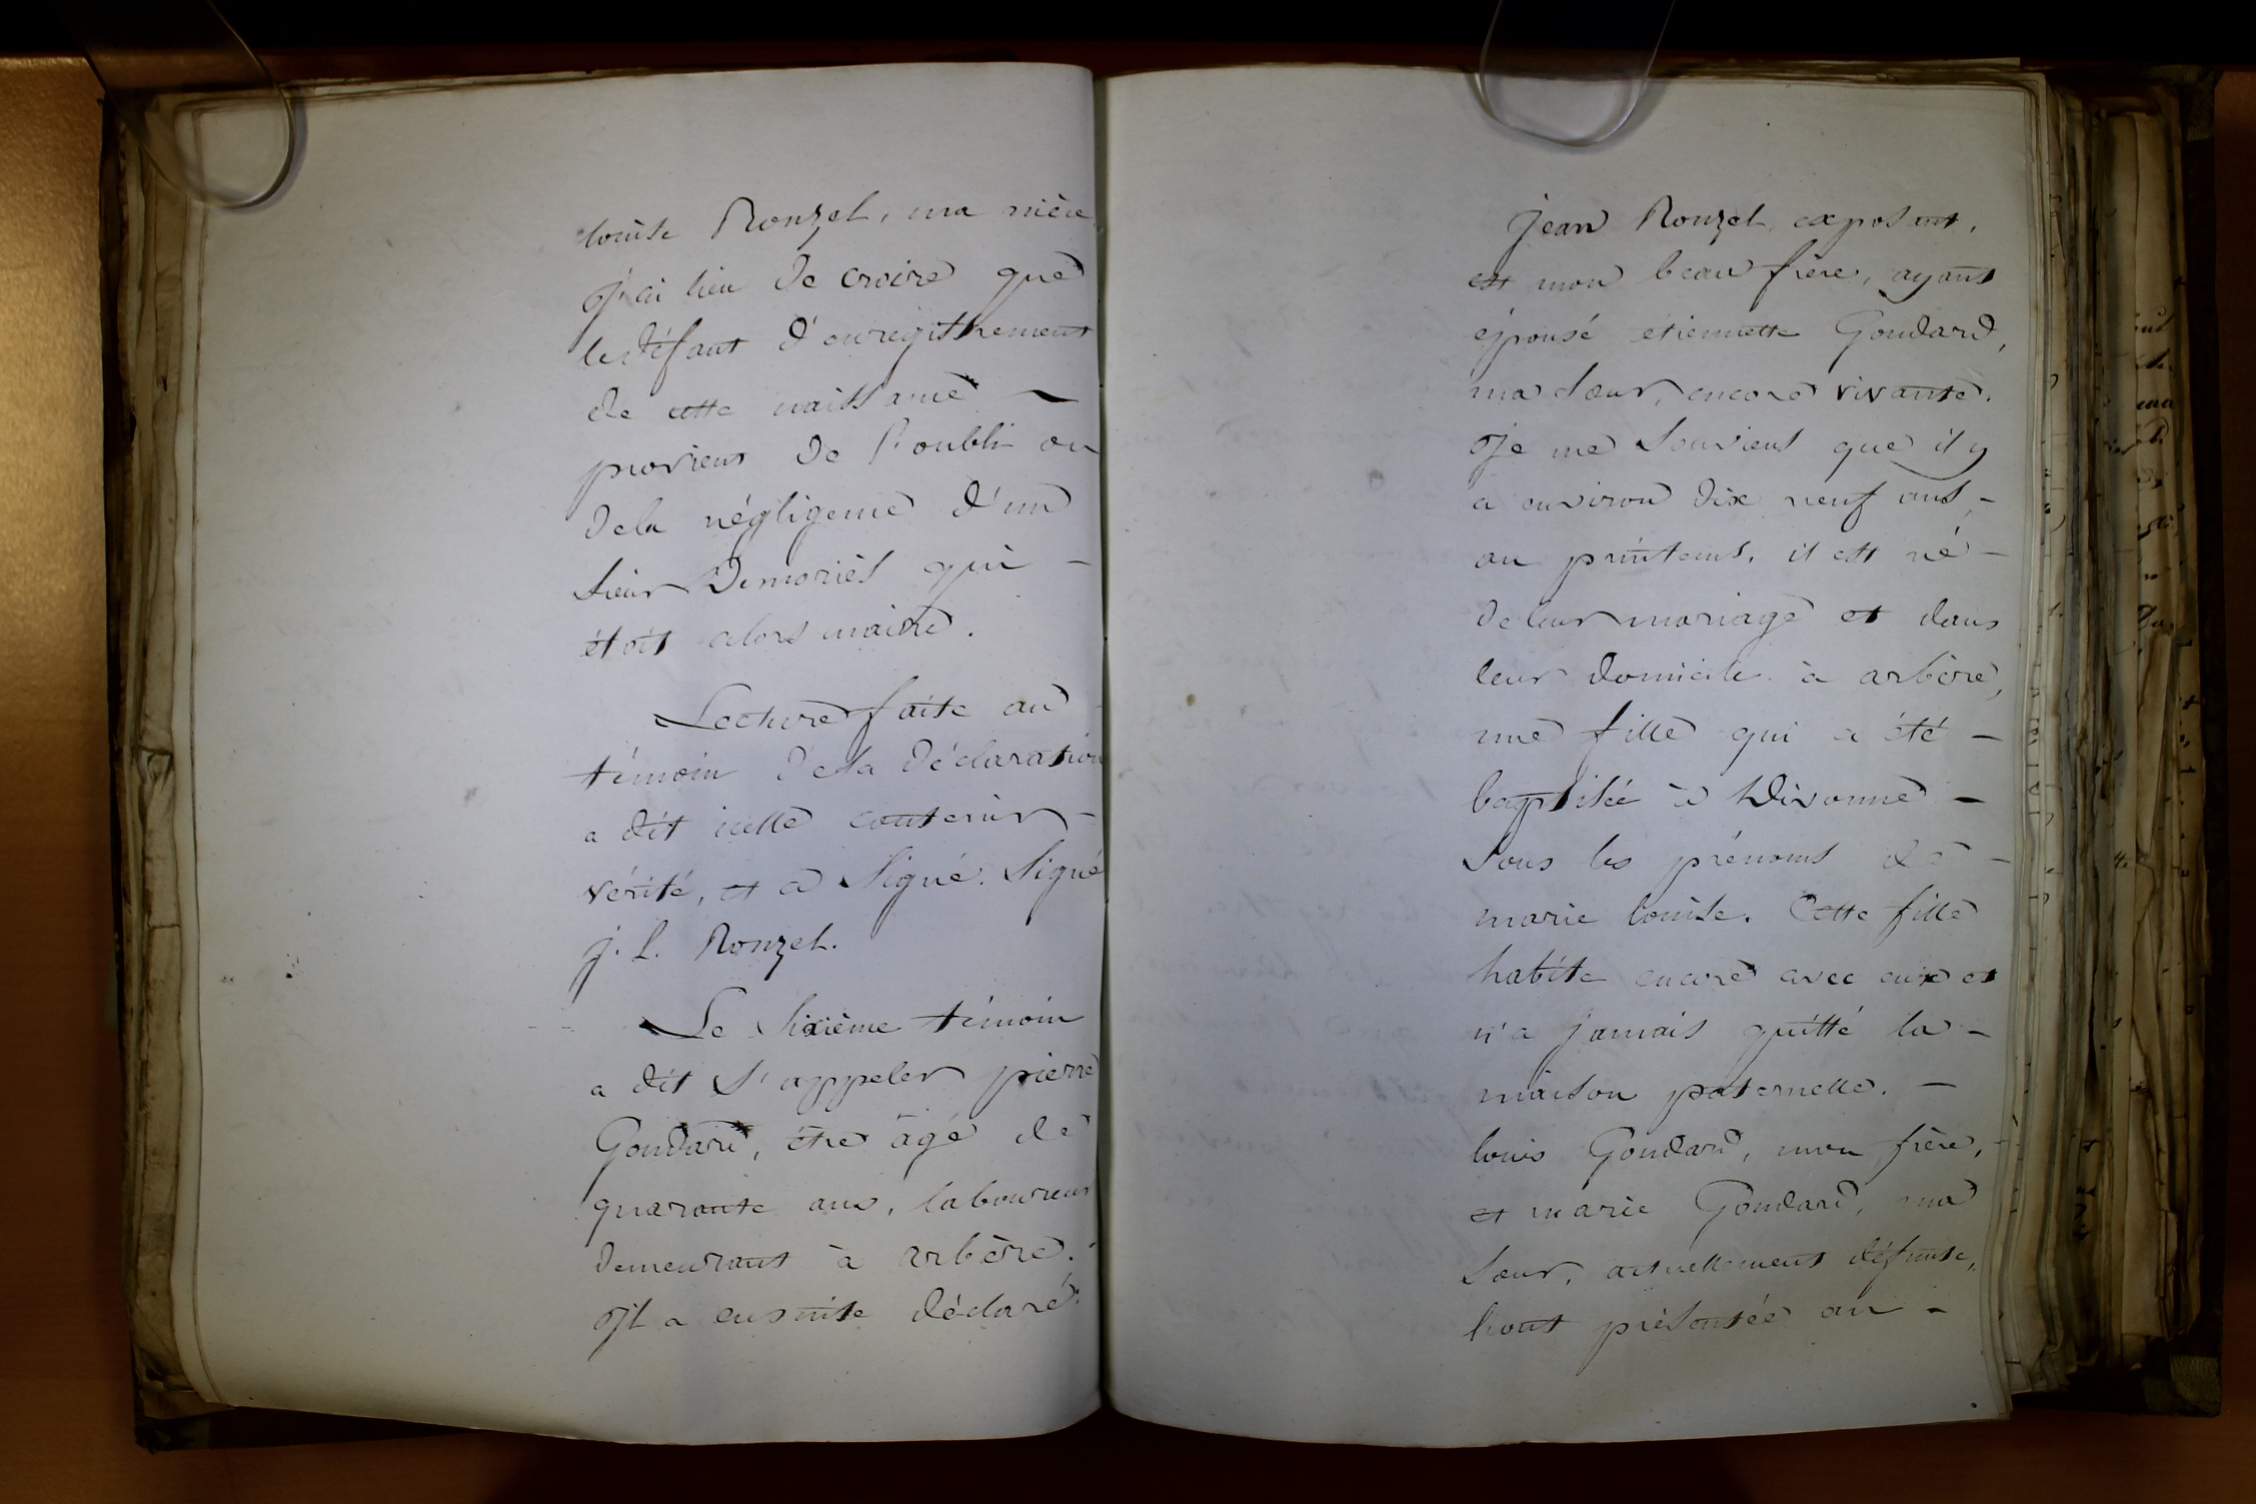 louise Ronzel, ma nièce
j'ai lieu de croire que
le défaut d'enregistrement
de cette naissance —
provient de l'oubli ou
dela négligence d'un
sieur Demoriès qui —
étoit alors maire.
Lecture faite au
témoin de sa déclaration
a dit icelle contenir —
vérité, et a signé. Signé
j. l. Ronzel.
Le sixième témoin
a dit s'appeler pierre
Goudard, être âgé de
quarante ans, laboureur
demeurant à arbère.
Il a ensuite déclaré:
jean Ronzel exposant,
est mon beau frère, ayant
épousé étiennette Goudard,
ma sœur, encore vivante.
Je me souviens que il y
a environ dix neuf ans, —
au printems, il est né —
de leur mariage et dans
leur domicile à arbère,
une fille qui a été —
baptisée à Divonne —
sous les prénoms de —
marie louise. Cette fille
habite encore avec eux et
n'a jamais quitté la —
maison paternelle. —
louis Goudard, mon frère,
et marie Goudard, ma
sœur, actuellement défunte,
l'ont présentée au —